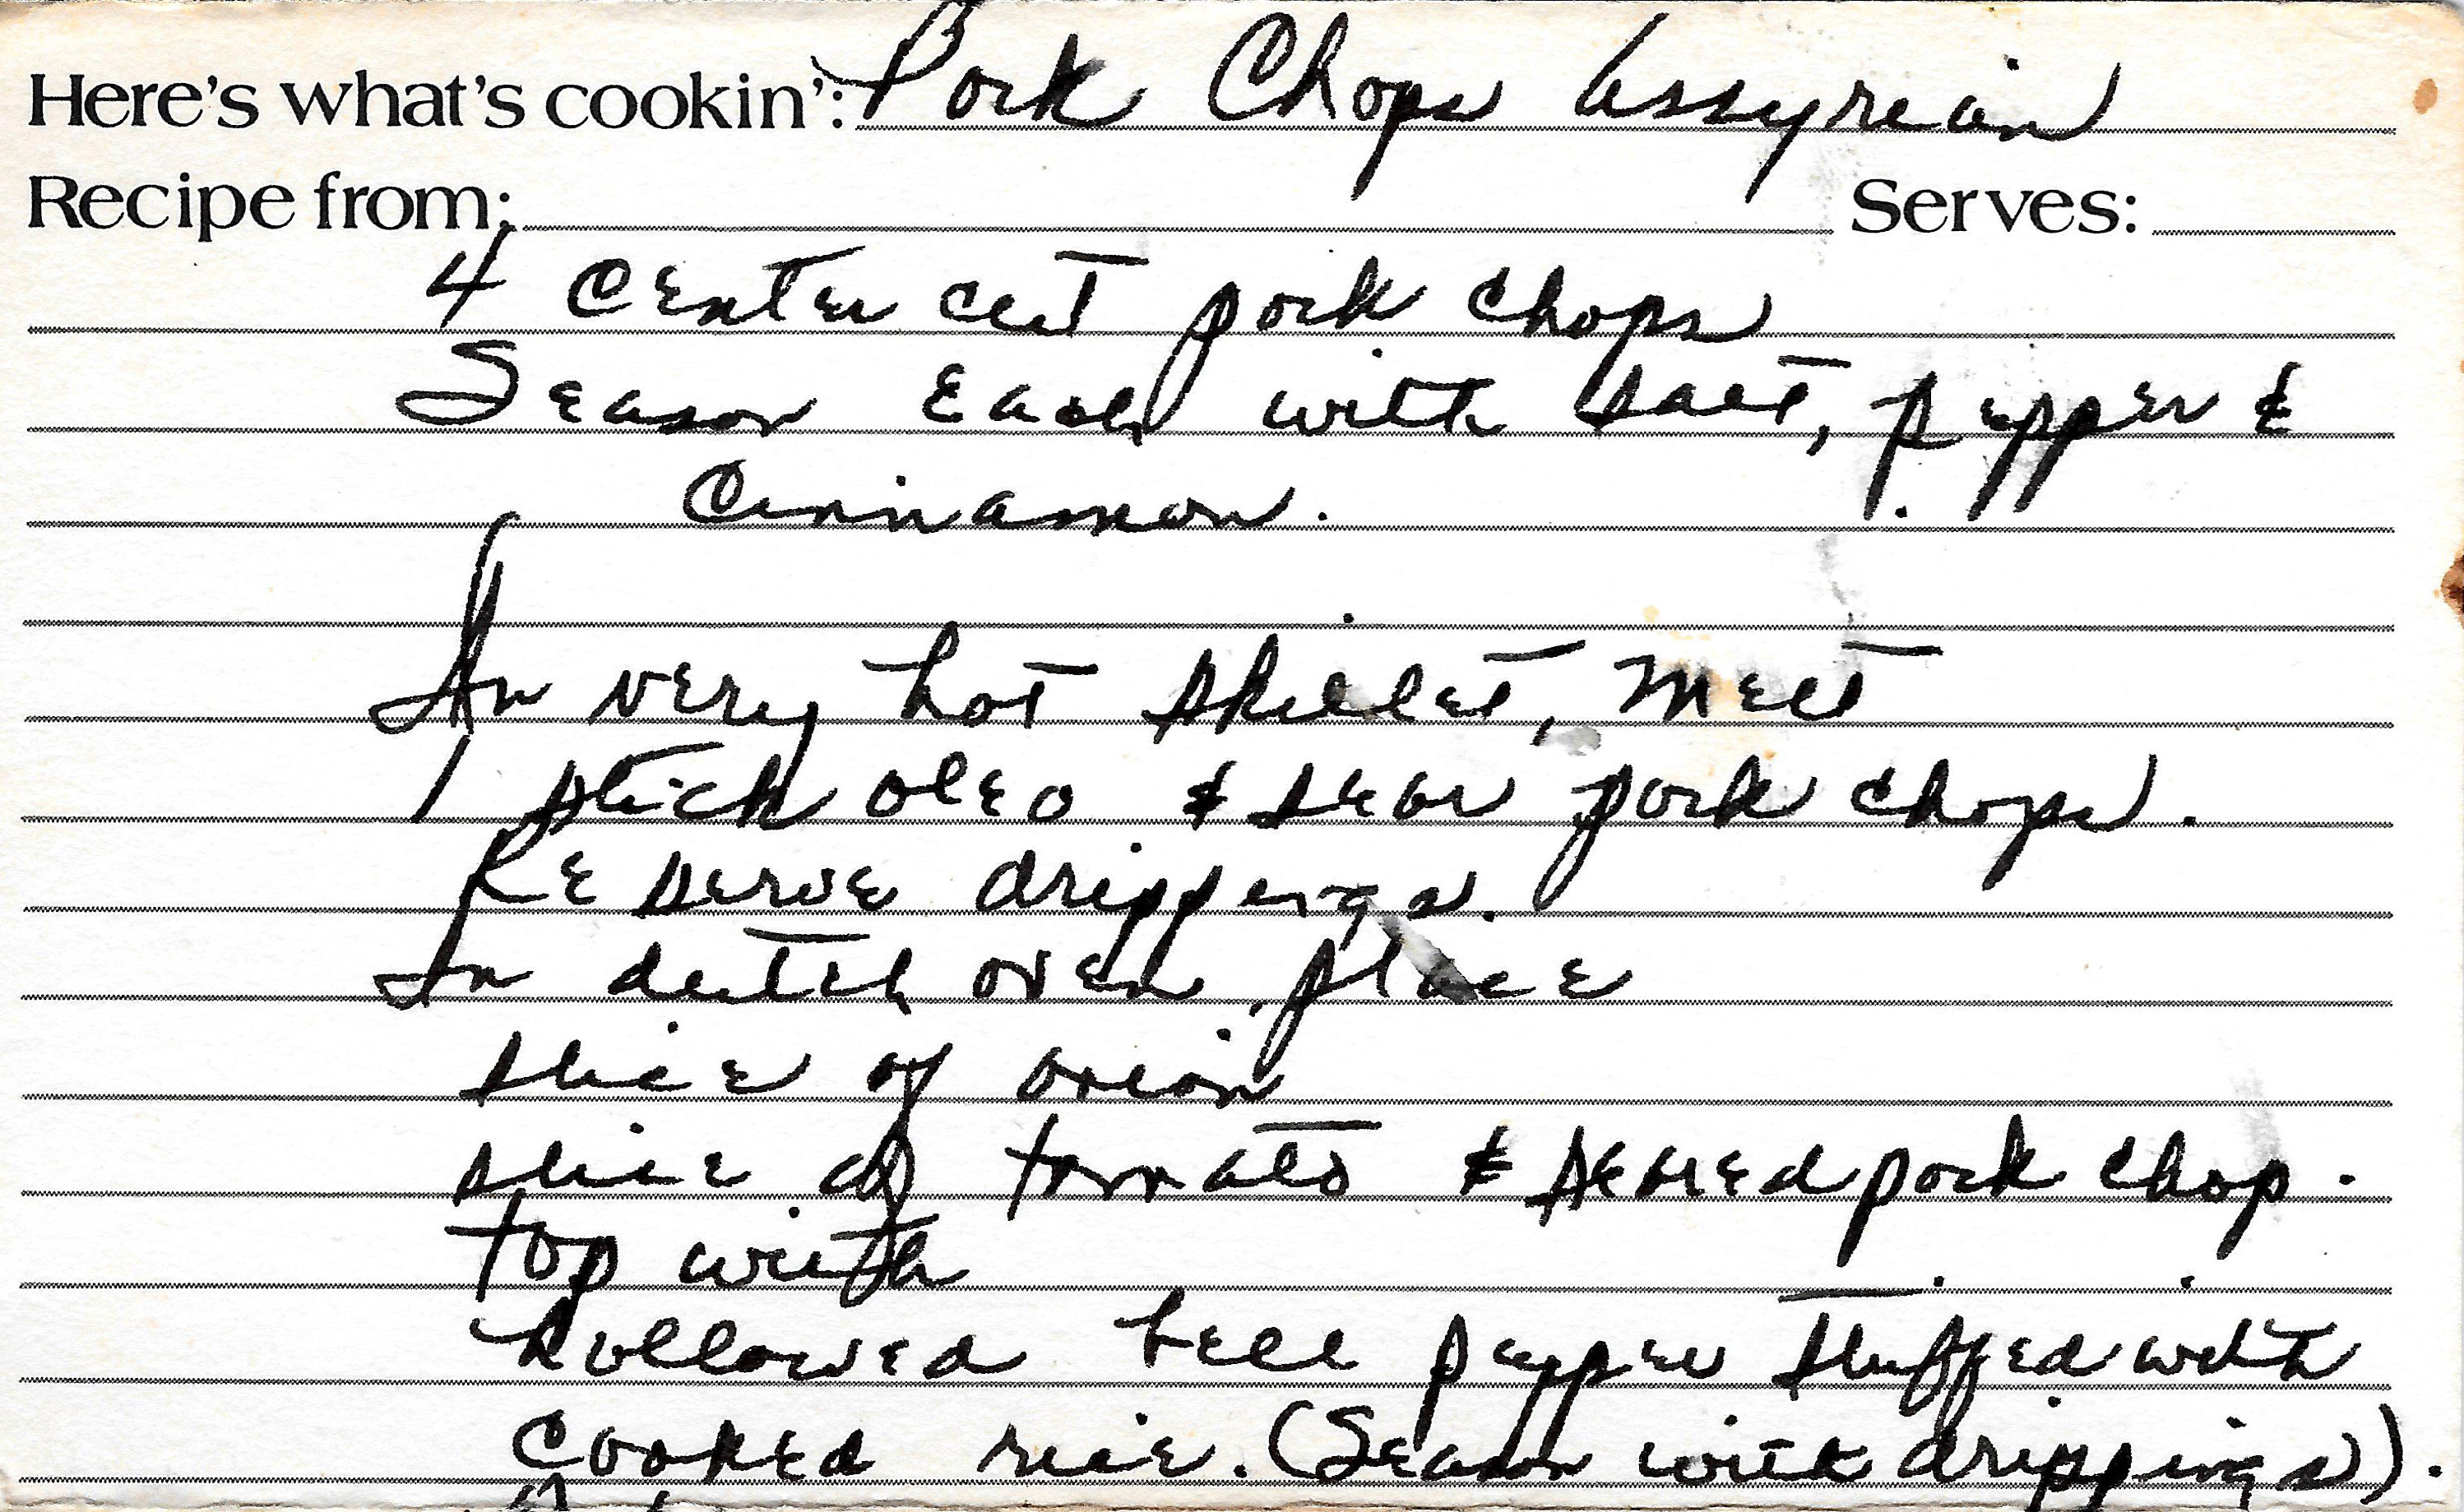 Here's what's cookin': Pork Chops Assyreian
Recipe from: Serves:
4 Center cut pork chops
Season each with salt, pepper &
Cinnamon.
In very hot skillet, melt
1 stick oleo & sear pork chops.
Reserve drippings.
In dutch oven, place
slice of onion
slice of tomato & seared pork chop.
top with
hollowed bell pepper stuffed with
cooked rice. (Season with drippings).